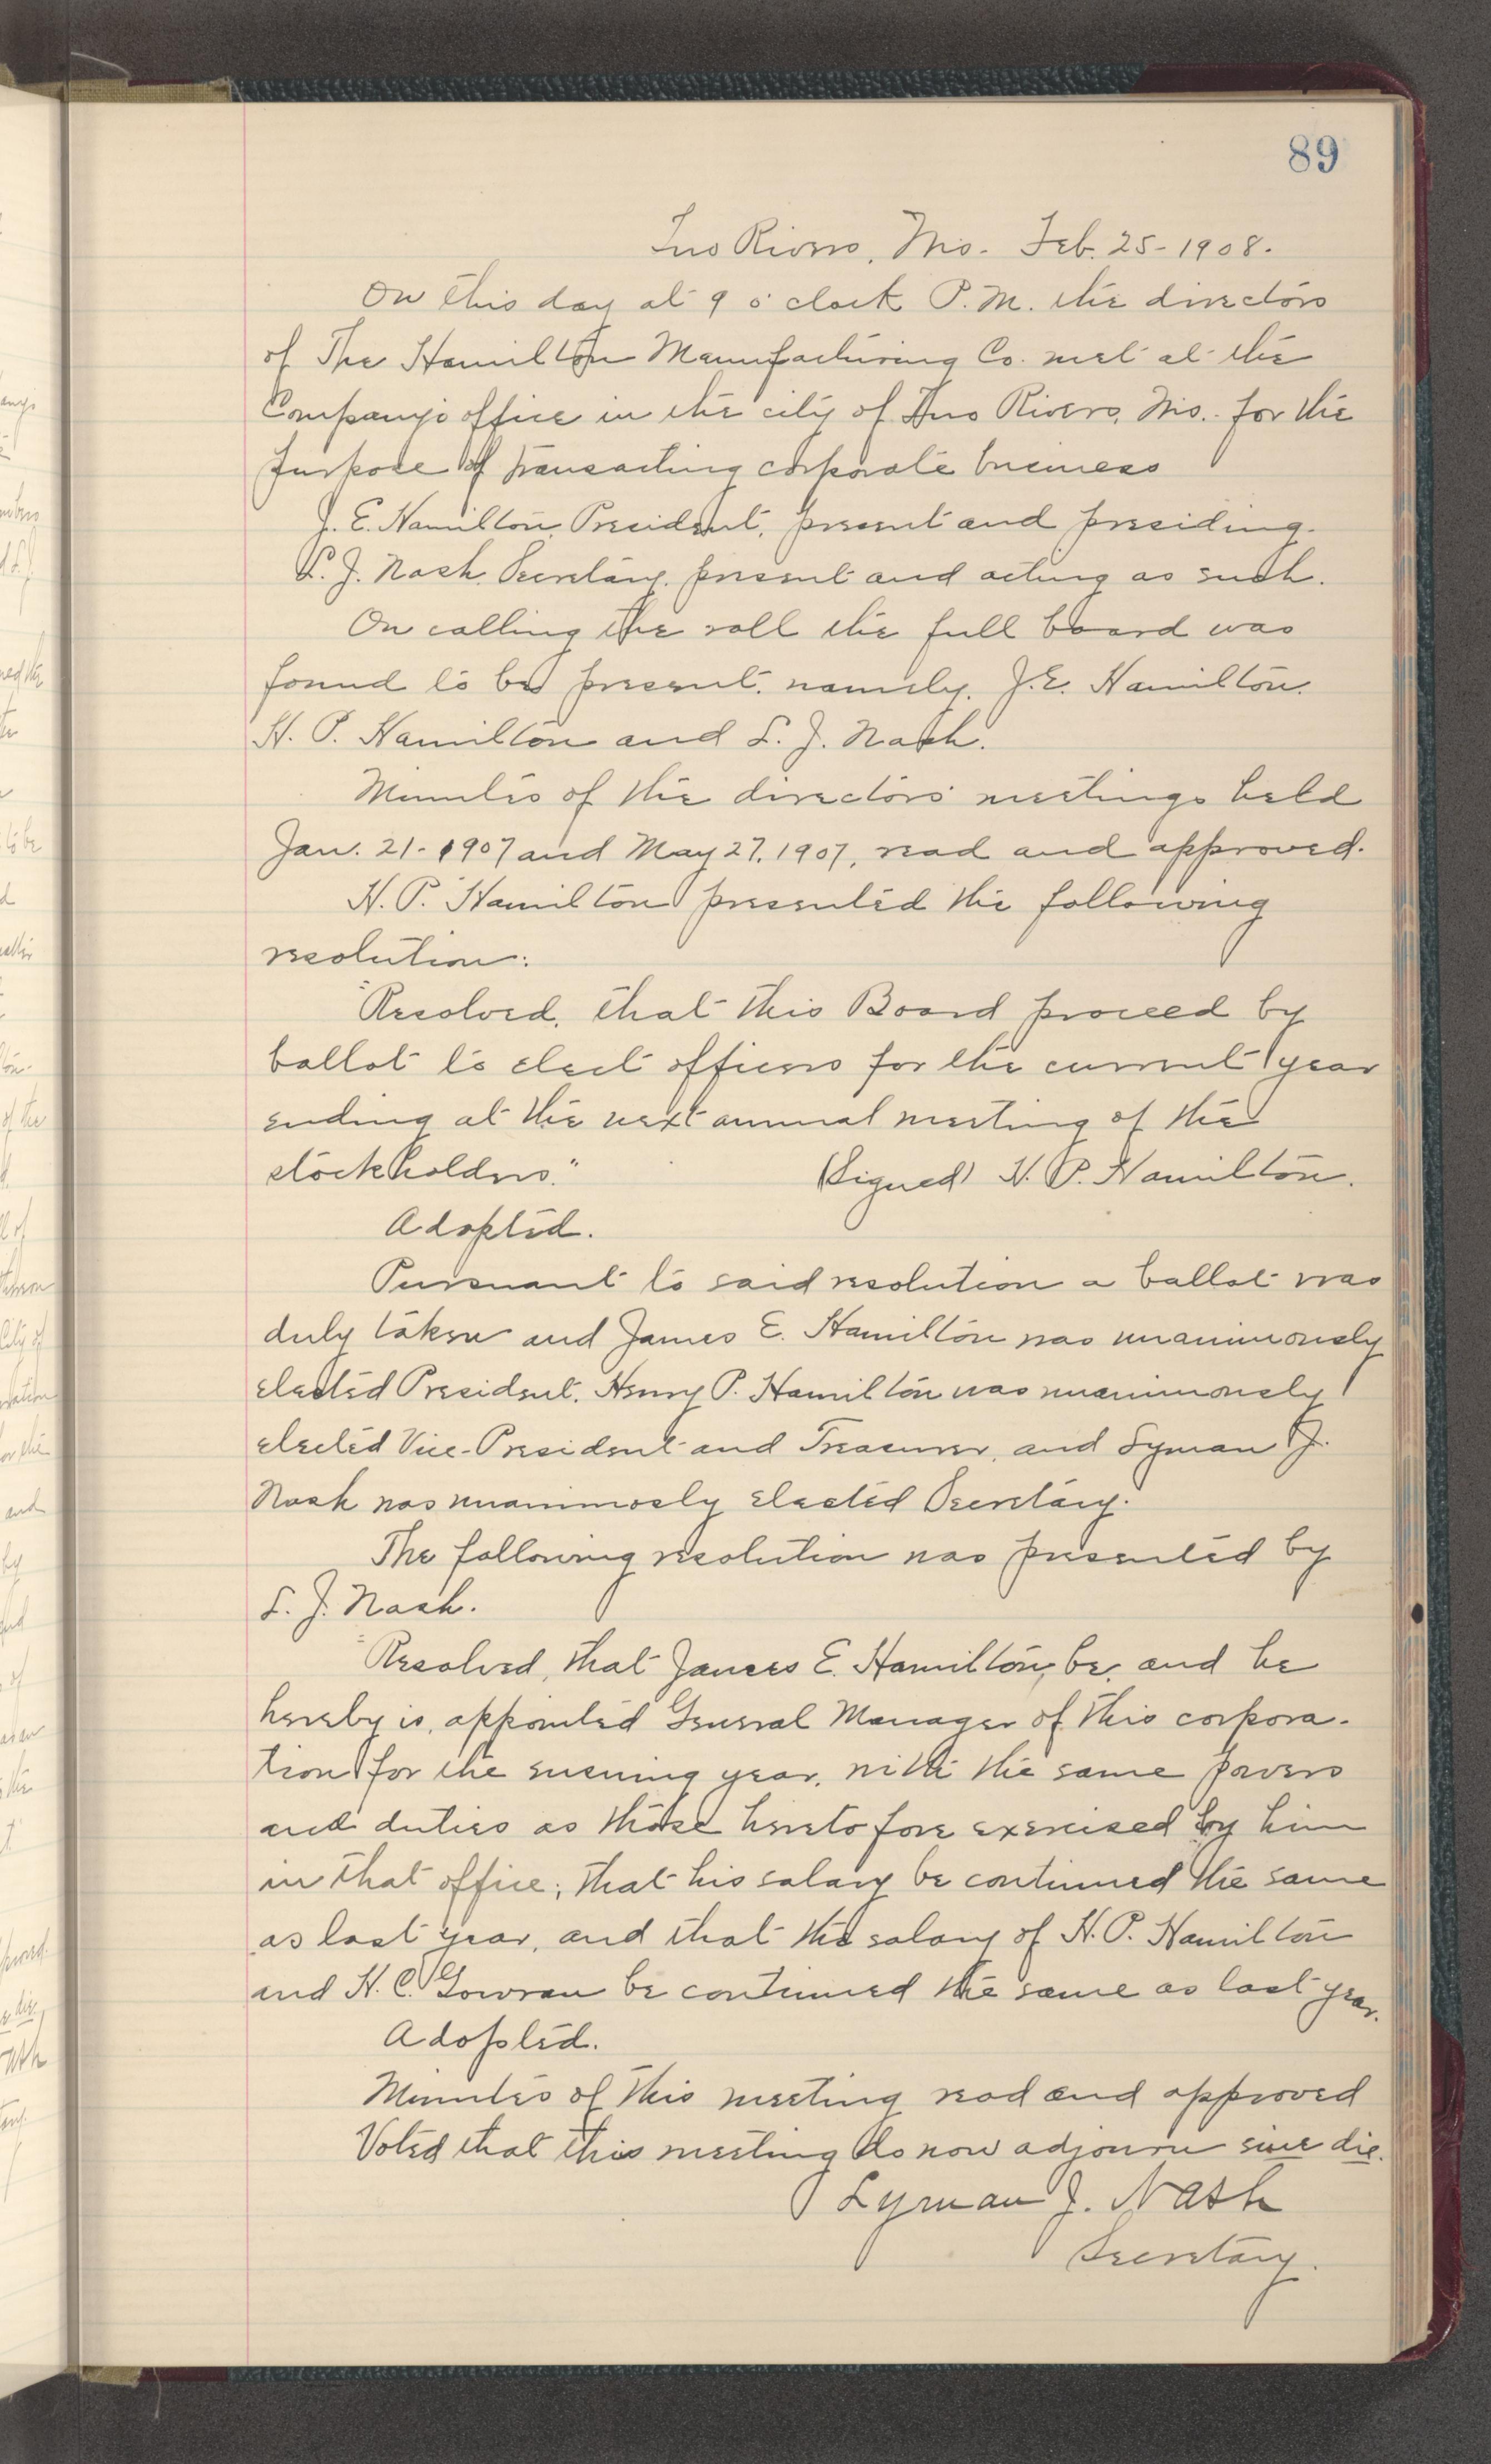 89
Two Rivers, Wis. Feb. 25-1908.
On this day at 9 o'clock P.M. the directors
of The Hamilton Manufacturing Co. met at the
Company's office in the city of Two Rivers, Wis. for the
purpose of transacting corporate business
J. E. Hamilton, President, present and presiding.
L. J. Nash, Secretary, present and acting as such.
On calling the roll the full board was
found to be present, namely, J. E. Hamilton,
H. P. Hamilton and L. J. Nash.
Minutes of the directors' meetings held
Jan. 21-1907 and May 27, 1907, read and approved.
H. P. Hamilton presented the following
resolution:
"Resolved, that this Board proceed by
ballot to elect officers for the current year
ending at the next annual meeting of the
stockholders."  (Signed) H. P. Hamilton.
Adopted.
Pursuant to said resolution a ballot was
duly taken and James E. Hamilton was unanimously
elected President, Henry P. Hamilton was unanimously
elected Vice-President and Treasurer, and Lyman J.
Nash was unanimosly elected Secretary.
The following resolution was presented by
L. J. Nash.
"Resolved, that James E. Hamilton, be, and he
hereby is, appointed General Manager of this corpora-
tion for the ensuing year, with the same powers
and duties as those heretofore exercised by him
in that office; that his salary be continued the same
as last year, and that the salary of H. P. Hamilton
and H. C. Gowran be continued the same as last year.
Adopted.
Minutes of this meeting read and approved
Voted that this meeting do now adjourn sine die.
Lyman J. Nash
Secretary.